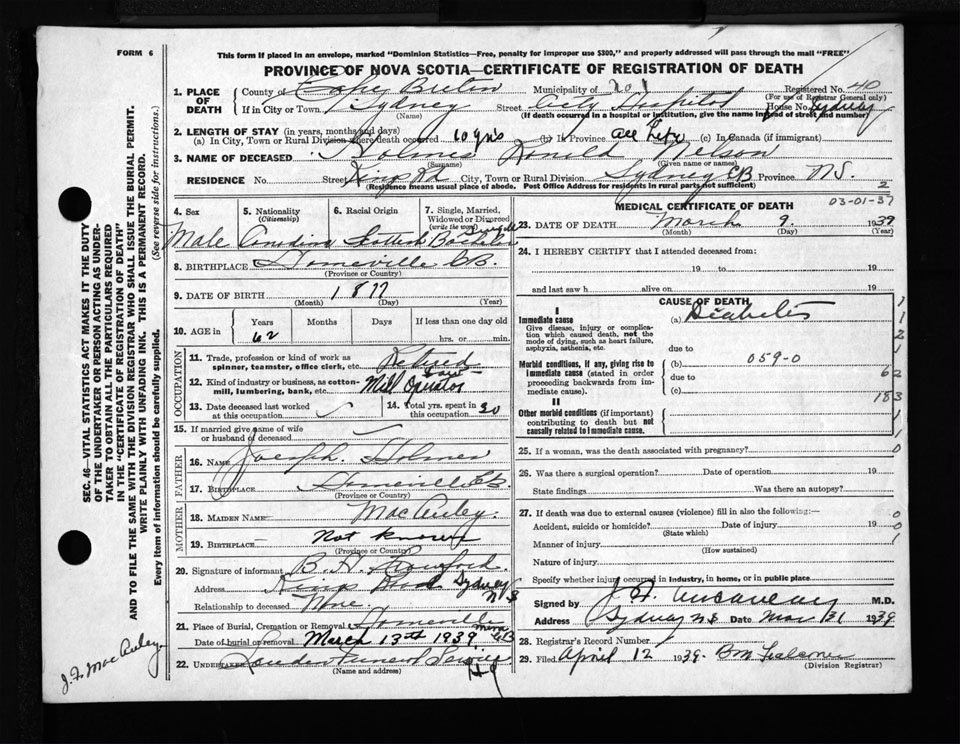 FORM 6
This form if placed in an envelope, marked "Dominion Statistics—Free, penalty for improper use $300," and properly addressed will pass through the mail "FREE"
PROVINCE OF NOVA SCOTIA—CERTIFICATE OF REGISTRATION OF DEATH
1. PLACE OF DEATH
County of Cape Breton Municipality of Registered No. 40
(For use of Registrar General only)
If in City or Town Sydney Street City Hospital House No. Sydney
(Name) (If death occurred in a hospital or institution, give the name instead of street and number)
2. LENGTH OF STAY (in years, months and days)
(a) In City, Town or Rural Division where death occurred 10 yrs (b) In Province all life (c) In Canada (if immigrant)
3. NAME OF DECEASED Holmes Ronald Nelson
(Surname) (Given name or names)
RESIDENCE No. Street Kings Rd City, Town or Rural Division Sydney CB Province N.S.
(Residence means usual place of abode. Post Office Address for residents in rural parts not sufficient)
2
03-01-37
4. Sex Male
5. Nationality (Citizenship) Canadian
6. Racial Origin Scottish
7. Single, Married, Widowed or Divorced (write the word) Single Bachelor
8. BIRTHPLACE Homeville C.B.
(Province or Country)
9. DATE OF BIRTH 1877
(Month) (Day) (Year)
10. AGE in Years 62 Months Days If less than one day old
hrs. or min.
OCCUPATION
11. Trade, profession or kind of work as spinner, teamster, office clerk, etc. Retired
12. Kind of industry or business, as cotton-mill, lumbering, bank, etc. Mill Operator
13. Date deceased last worked at this occupation
14. Total yrs. spent in this occupation 30
15. If married give name of wife or husband of deceased
FATHER
16. NAME Joseph Holmes
17. BIRTHPLACE Homeville C.B.
(Province or Country)
MOTHER
18. MAIDEN NAME MacAuley
19. BIRTHPLACE Not known
(Province or Country)
20. Signature of informant B. H. Crawford
Address Kings Road Sydney N.S
Relationship to deceased None
21. Place of Burial, Cremation or Removal Homeville
Date of burial or removal March 13th 1939 CB
22. UNDERTAKER Funeral Service
(Name and address)
MEDICAL CERTIFICATE OF DEATH
23. DATE OF DEATH March 9 1939
(Month) (Day) (Year)
24. I HEREBY CERTIFY that I attended deceased from:
19 to 19
and last saw h alive on 19
CAUSE OF DEATH
I
Immediate cause
Give disease, injury or complication which caused death, not the mode of dying, such as heart failure, asphyxia, asthenia, etc.
(a) Diabetes
due to
Morbid conditions, if any, giving rise to immediate cause (stated in order proceeding backwards from immediate cause).
(b) 059-0
due to
(c)
II
Other morbid conditions (if important) contributing to death but not causally related to immediate cause.
1
1
2
1
62
183
1
1
0
25. If a woman, was the death associated with pregnancy?
26. Was there a surgical operation? Date of operation 19
State findings Was there an autopsy?
27. If death was due to external causes (violence) fill in also the following:— 0
Accident, suicide or homicide? Date of injury 19 0
(State which)
Manner of injury 1
(How sustained)
Nature of injury
Specify whether injury occurred in industry, in home, or in public place
Signed by M.D.
Address Sydney N.S Date Mar 31 1939
28. Registrar's Record Number
29. Filed April 12 1939
(Division Registrar)
SEC. 46—VITAL STATISTICS ACT MAKES IT THE DUTY
OF THE UNDERTAKER OR PERSON ACTING AS UNDER-
TAKER TO OBTAIN ALL THE PARTICULARS REQUIRED
IN THE "CERTIFICATE OF REGISTRATION OF DEATH"
AND TO FILE THE SAME WITH THE DIVISION REGISTRAR WHO SHALL ISSUE THE BURIAL PERMIT.
WRITE PLAINLY WITH UNFADING INK. THIS IS A PERMANENT RECORD.
Every item of information should be carefully supplied. (See reverse side for instructions.)
J. F. MacAuley